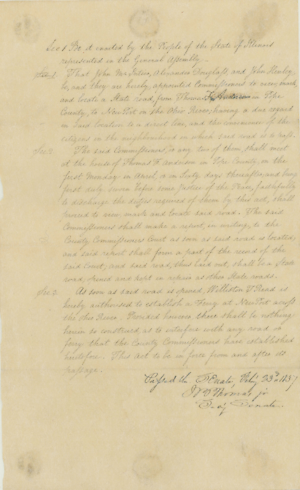 Sec 1 Be it enacted by the People of the State of Illinois
represented in the General Assembly.
That John McFarlan, Alexander Douglass, and John
be, and they are hereby, appointed Commissioners to view, mark,
and locate a State road, from Thomas Anderson in Pope
County, to on the Ohio River, having a due regard
in said location to a direct line, and the convenience of the
citizens in the neighborhood in which said road is to pass.
Sec 2. The said Commissioners, or any two of them, shall meet
at the house of Thomas Anderson in Pope County, on the
first Monday in April, or in sixty days thereafter, and being
first duly sworn before some Justice of the Peace, faithfully
to discharge the duties required of them by this act, shall
proceed to view, mark and locate said road. The said
Commissioners shall make a report, in writing, to the
County Commissioners Court as soon as said road is located;
and said report shall form a part of the record of the
said Court; and said road, thus laid out, shall be a State
road, opened and kept in repair as other State roads.
Sec 3. As soon as said road is opened, Ford is
hereby authorised to establish a Ferry at across
the Ohio River. Provided however there shall be nothing
herein so construed as to interfere with any road or
ferry that the County Commissioners have established
heretofore. This act to be in force from and after its
passage.
Passed the Senate, Feby 23rd 1837
J B Thomas jr
Senate